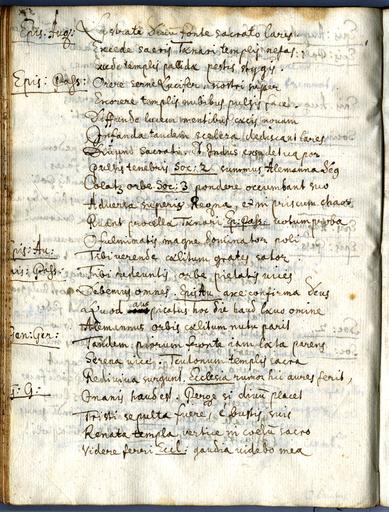 Epis: Aug: Lustrate Divi fonte sacrato lares
Excede sacris Tænari templis nefas:
cede templis pallida pestis stygis.
Epis: Pass: Orere serene Lucifer, nostri super
Enorere templis nubibus pulsis
Diffunde lucem montibus excis novam
Infanda tandem scelera dediscant lares
Divum sacrati.
Pressis tenebris Soc: 2. summus Alemanna
orbe Soc: 3 pondere occumbant suo
Adversa superis Regna, et in priscum chaos
Ruant procella Tænari Ep: Pass: votum proba
O fulminatis magne Dominator poli
Epis: Au: Tibi verende cælitum grates sator
Epis: Pass: Tibi redeuntis orbe pietatis vices
Debemus omnes. Epis: Au: axe confirma Deus
Quod pietas hoc die haud lævo omine
Alemannus orbis cælitum nutu parit
Gen: Ger: Tandem priorum fronte iam læta parens
Serena vice, Teutonum templa sacra
Rediviva surgunt, Ecclesia rumor hic aures ferit,
Inanis haud est. Perge si divis placet
G: G: Tristi sepulta fuere, e bustis suis
Renata templa vertice in coelum sacro
Videre ferri Eccl: gaudia videbo mea